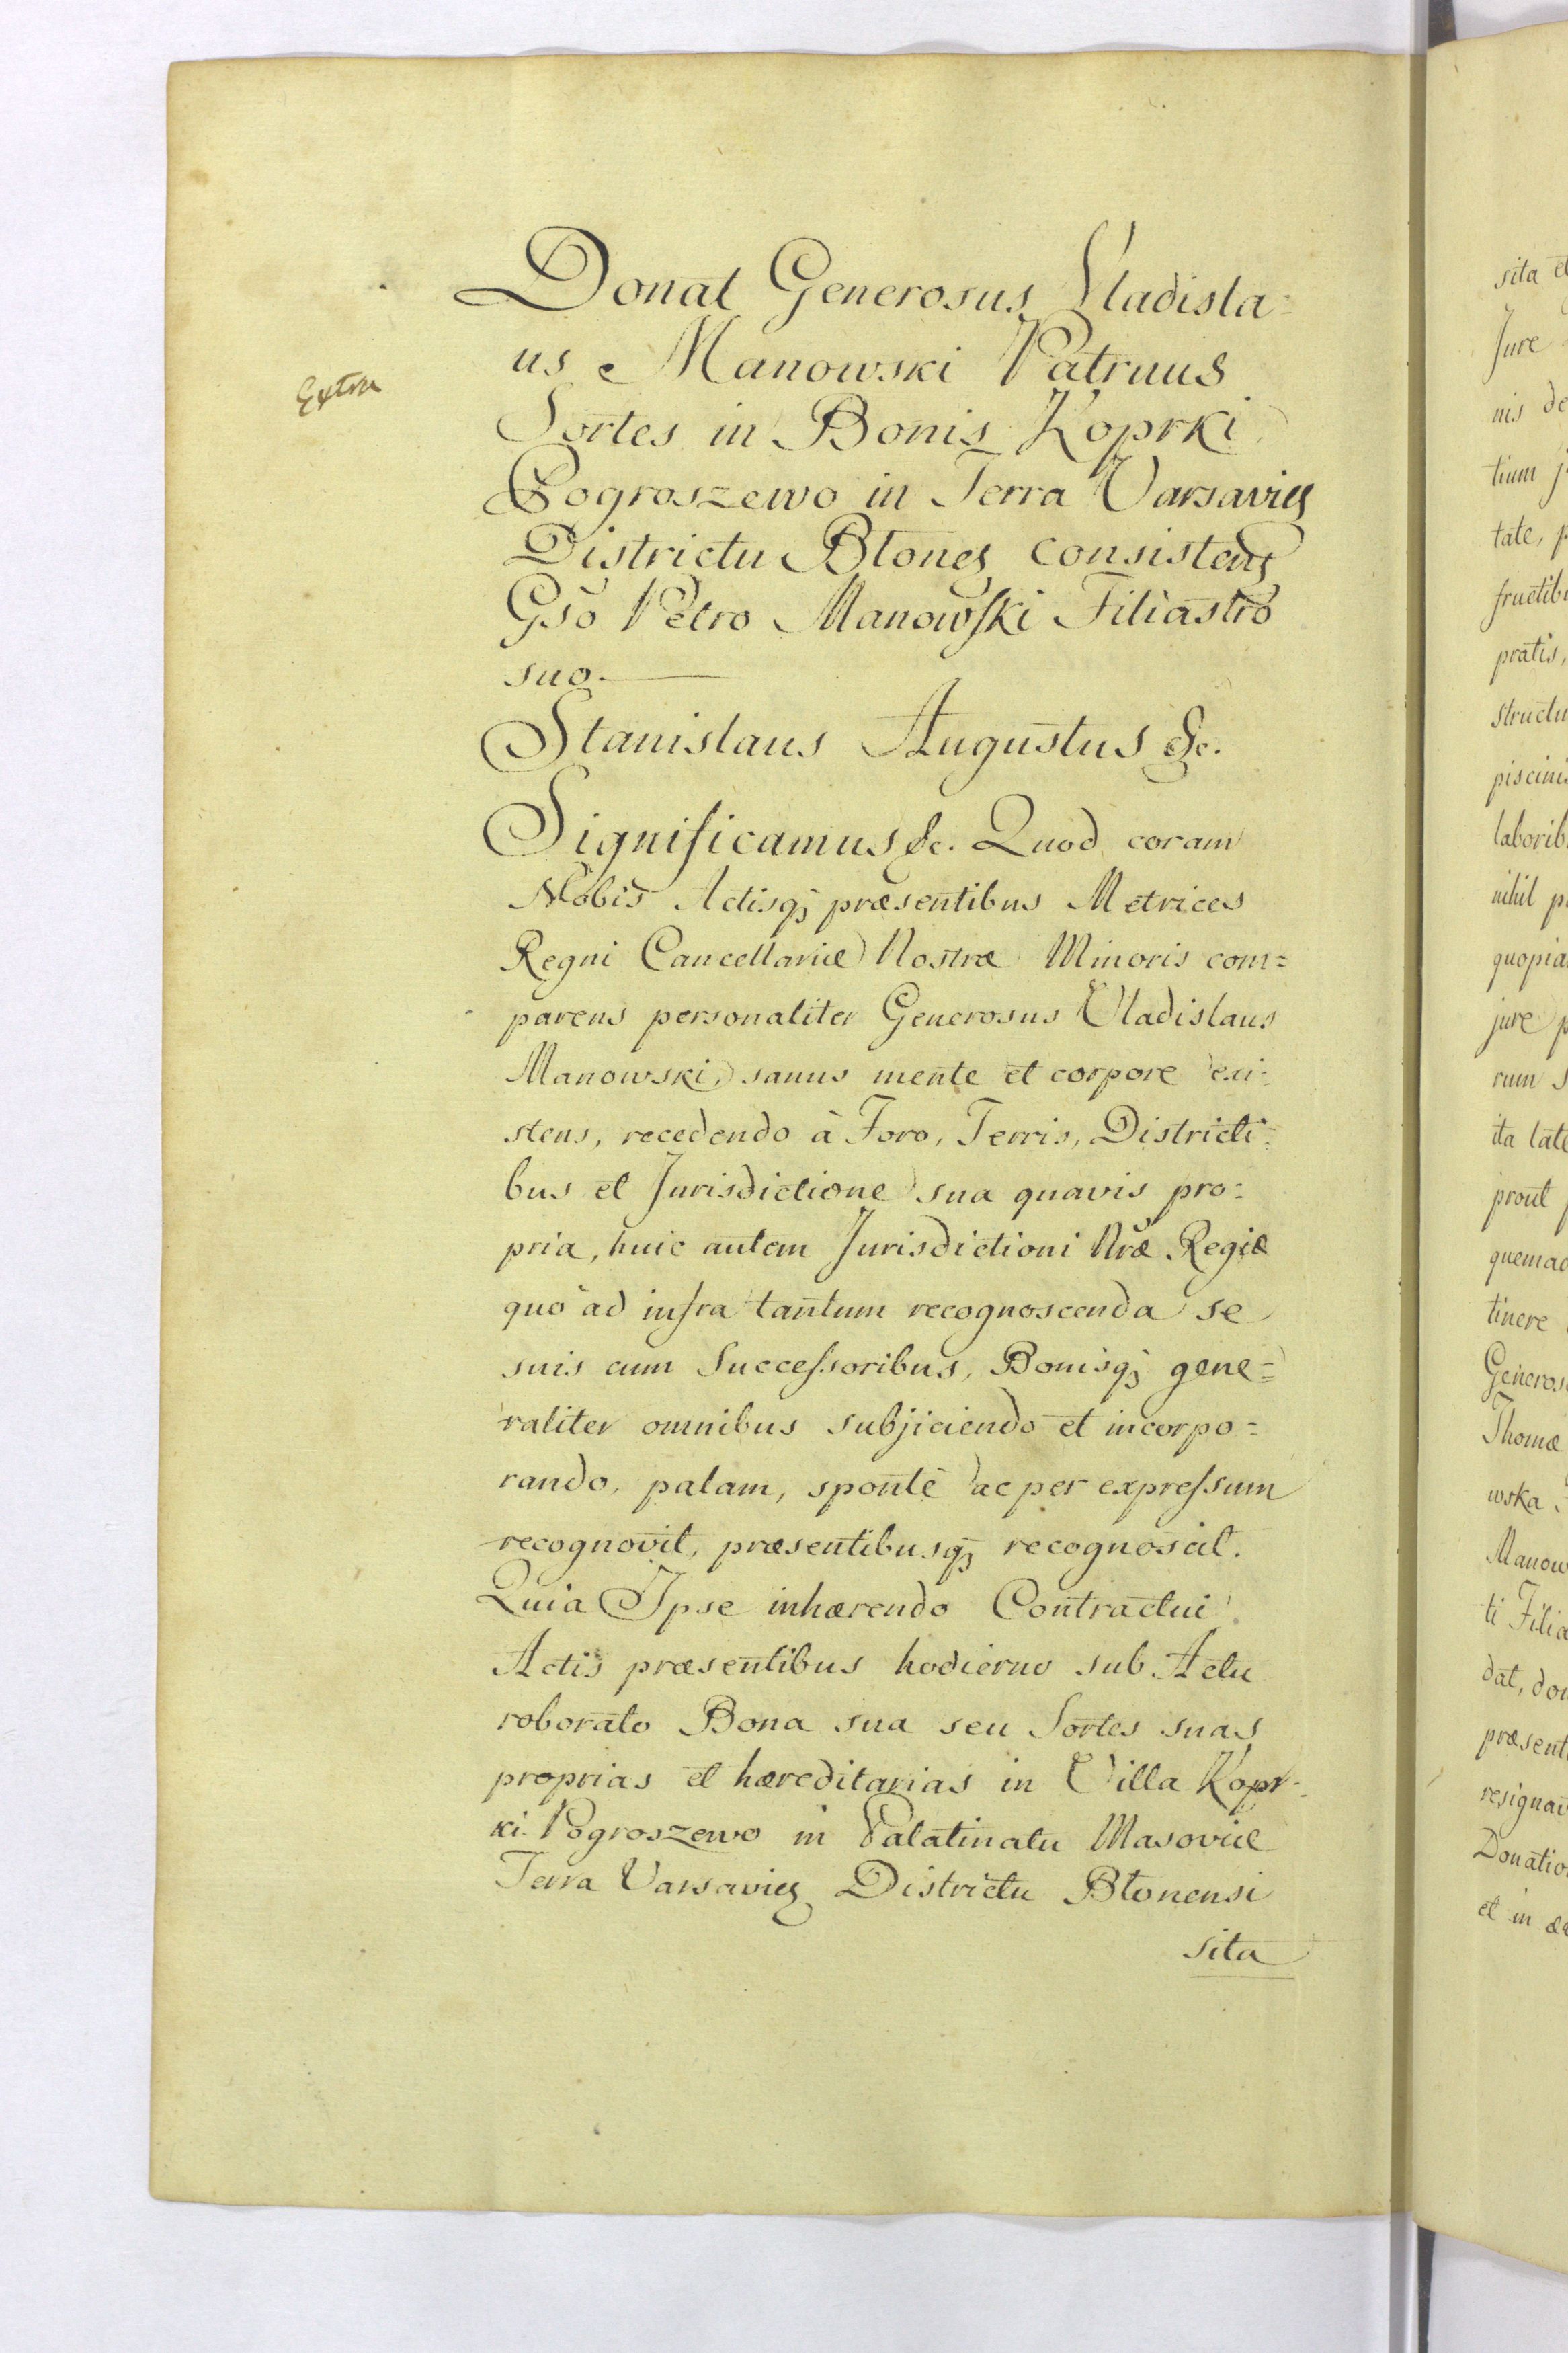 Extra
Donat Generosus Vladisla=
us Manowski Patruus
Sortes in Bonis Koprki
Pogroszewo in Terra Varsavieȝ
Districtu Błoneȝ consistenȝ
Gso Petro Manowski Filiastro
suo.
Stanislaus Augustus &c.
Significamus &c. Quod coram
Nobis Actisqȝ præsentibus Metrices
Regni Cancellariæ Nostræ Minoris com=
parens personaliter Generosus Vladislaus
Manowski, sanus mente et corpore exi=
stens, recedendo à Foro, Terris, Districti=
bus et Jurisdictione sua quavis pro=
pria, huic autem Jurisdictioni Nræ Regiæ
quo ad infra tantum recognoscenda se
suis cum Successoribus, Bonisqȝ gene=
raliter omnibus subjiciendo et incorpo=
rando, palam, sponte ac per expressum
recognovit, præsentibusqȝ recognoscit.
Quia Ipse inhærendo Contractui
Actis præsentibus hodierno sub Actu
roborato Bona sua seu Sortes suas
proprias et hæreditarias in Villa Kopr=
ki Pogroszewo in Palatinatu Masoviæ
Terra Varsavieȝ Districtu Błonensi
sita
sita et
Jure
nis de
tium
tate,
pratis,
piscinis
nihil
jure
rum
ita late
prout
tinere
Thomæ
wska
ti Filia
dat,
et in